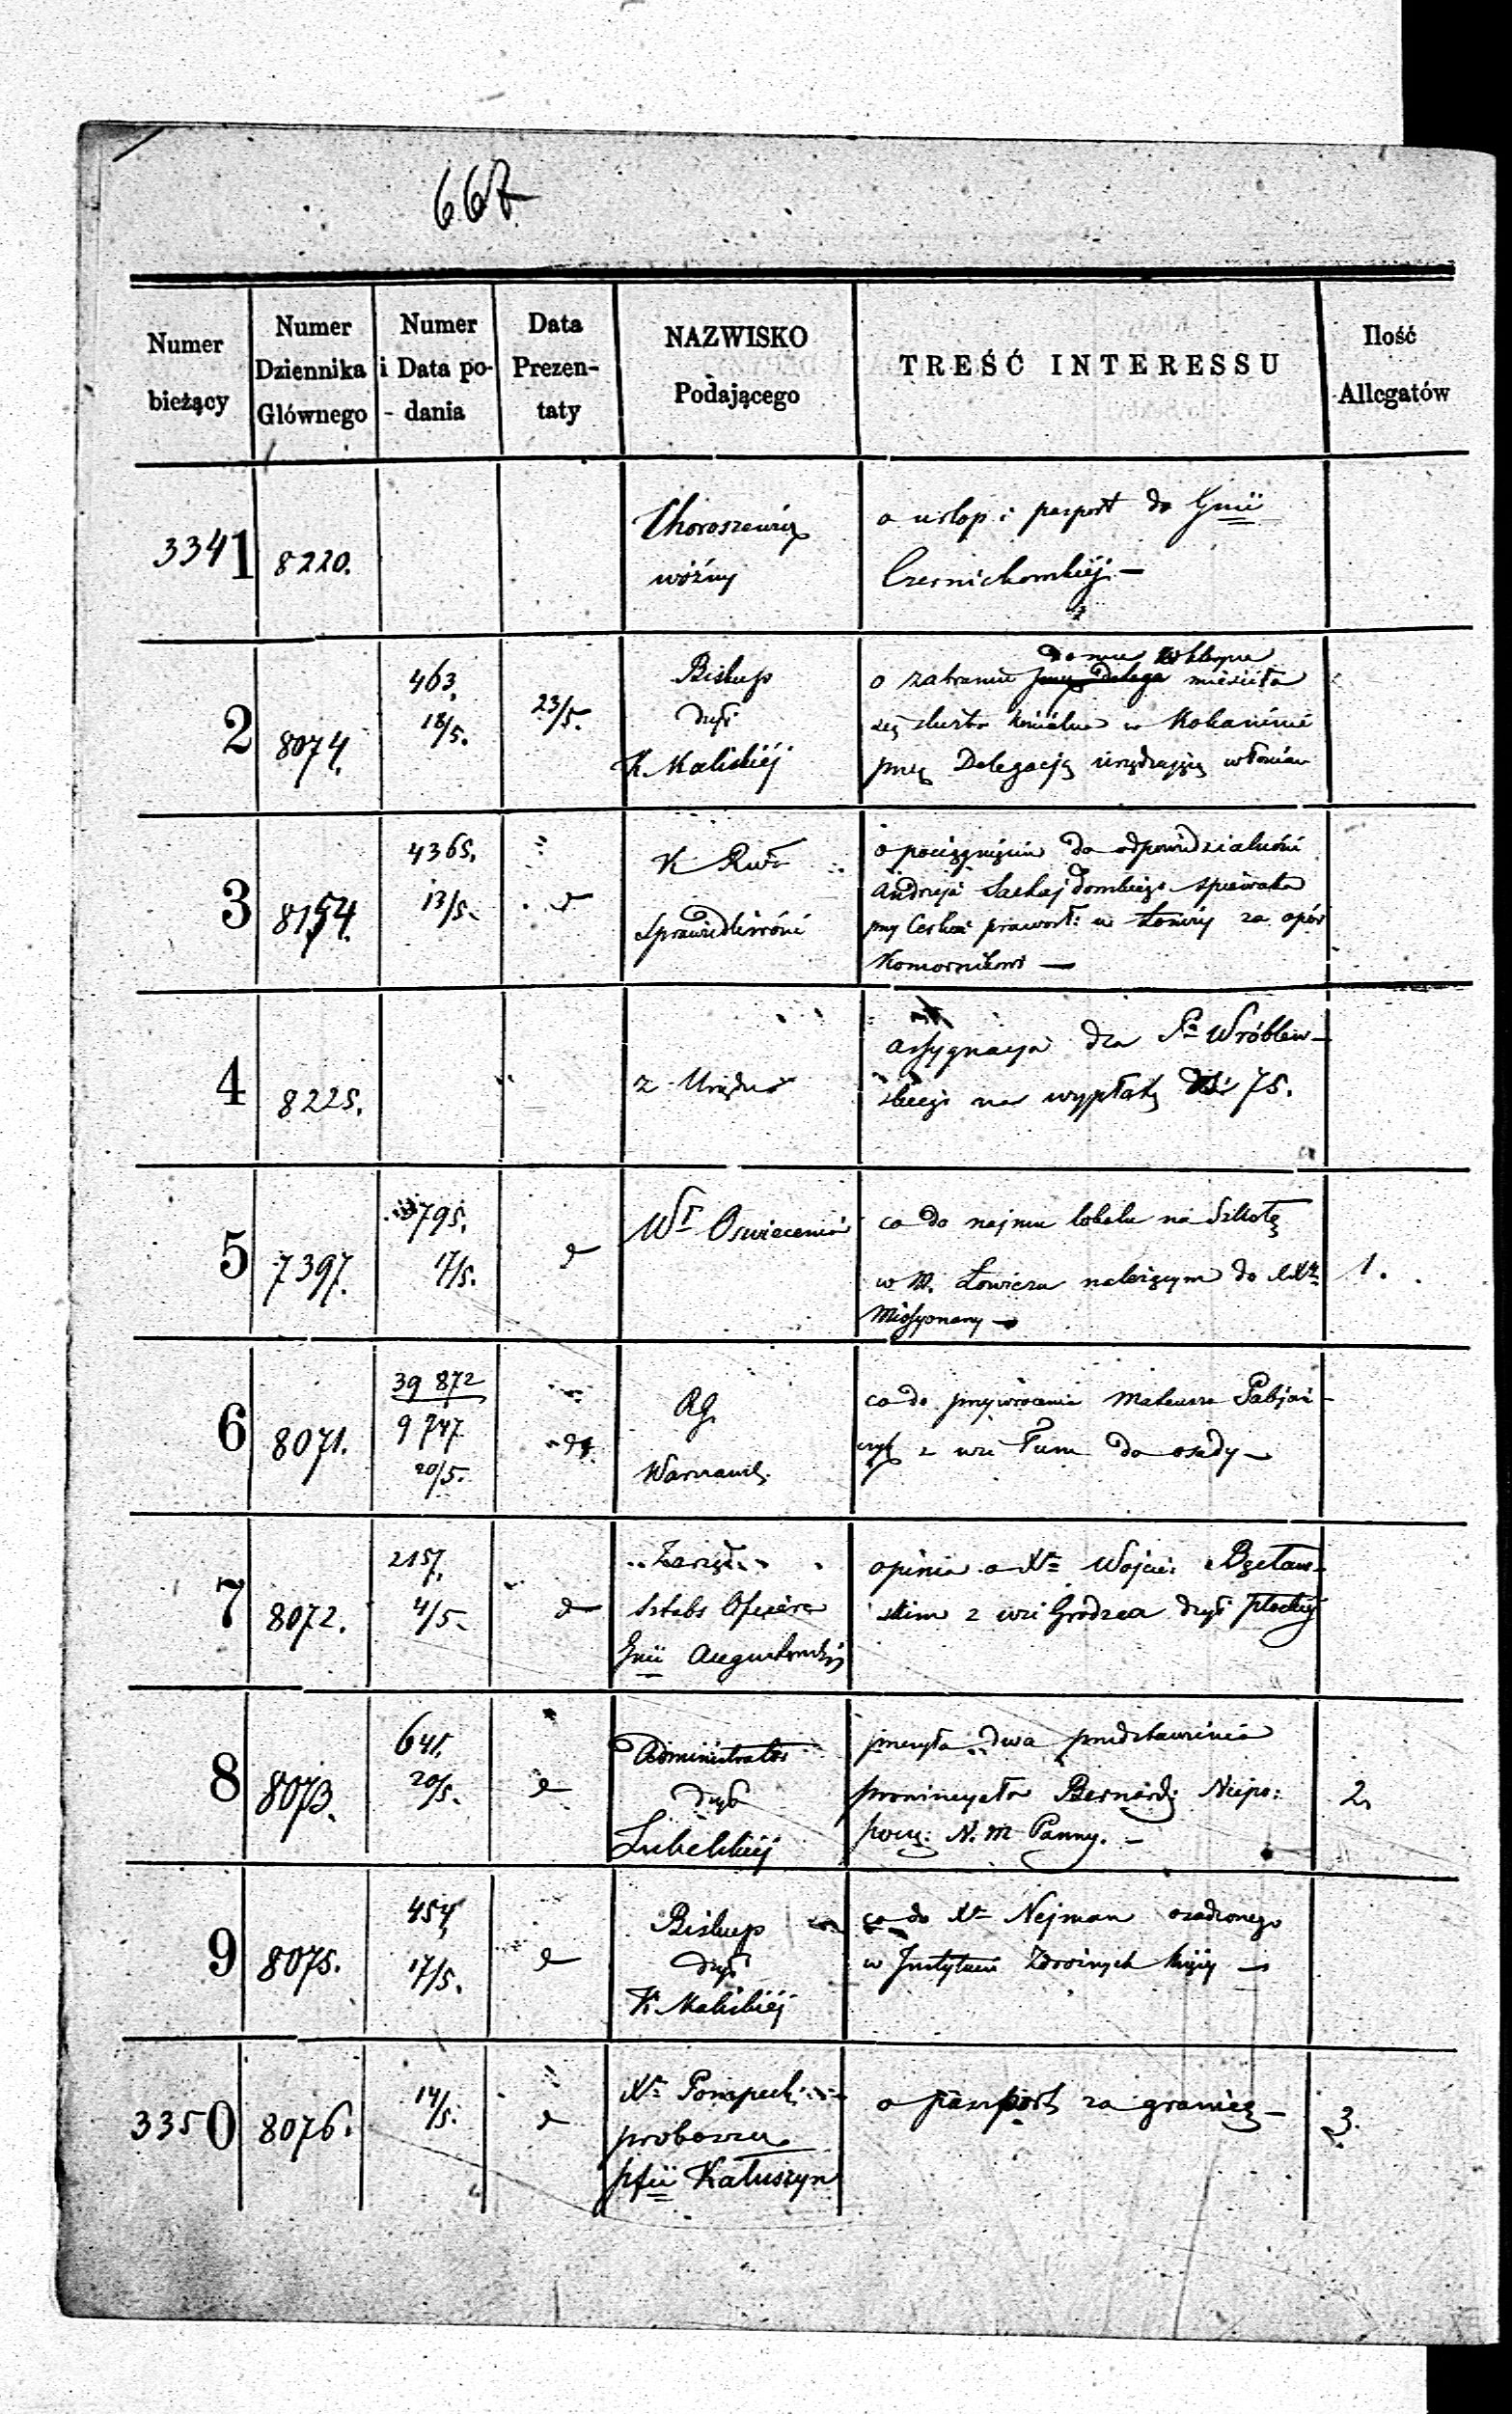 667
Numer bieżący
Numer Dziennika Głównego
Numer i Data podania
Data Prezentaty
NAZWISKO Podającego
TREŚĆ INTERESSU
Ilość Allegatów
3341
8220.
Choroszewicz
woźny
o urlop i paszport do Gnii
Czernichowskiéj. —
2
8074.
463.
18/5.
23/5.
Biskup
dyi
K. Kaliskiéj
domu
o zabranie mieściła
się służba w Kokaninie
przy Delegacją urządzającą włościan
3
8154.
4365.
13/5.
d
K Rzą
Sprawiedliwości
o pociągnięcie do odpowiedzialności
Andrzeja spiewaka
przy Cerkwi prawosł: w za opór
Komornikowi —
4
8225.
z Urzędu
assygnacya dla Pa Wróblew-
skiego na wypłatę Rs 75.
5
7397.
795.
17/5.
d
Wł Oswiecenia
co do najmu lokalu na Szkołę
w M. Łowiczu należącym do XX
Missyonarzy —
1.
6
8071.
39 872
9 747
20/5.
d
RG.
Warszaws.
co do przywrócenia Mateusza Pabjań-
czyk z wsi Tum do osady —
7
8072.
2157.
4/5.
d
Zarząd
Sztabs Oficera
Gnii Augustowskiéj
opinia o Xu Wojcie:
skim z wsi Grodzca dyi Płockiéj
8
8073.
641.
20/5.
d
Administrator
dyi
Lubelskiéj
przesyła dwa przedstawienia
prowincyała Bernard: Niepo:
pocz: N. M Panny. —
2
9
8075.
454
17/5.
d
Biskup
dyi
K. Kaliskiéj
co do Xa Nejman osadzonego
w Instytucie Zdrożnych Księży —
3350
8076.
14/5.
d
Xa
proboszcza
pfii Kałuszyn
o paszport za granicę —
3.